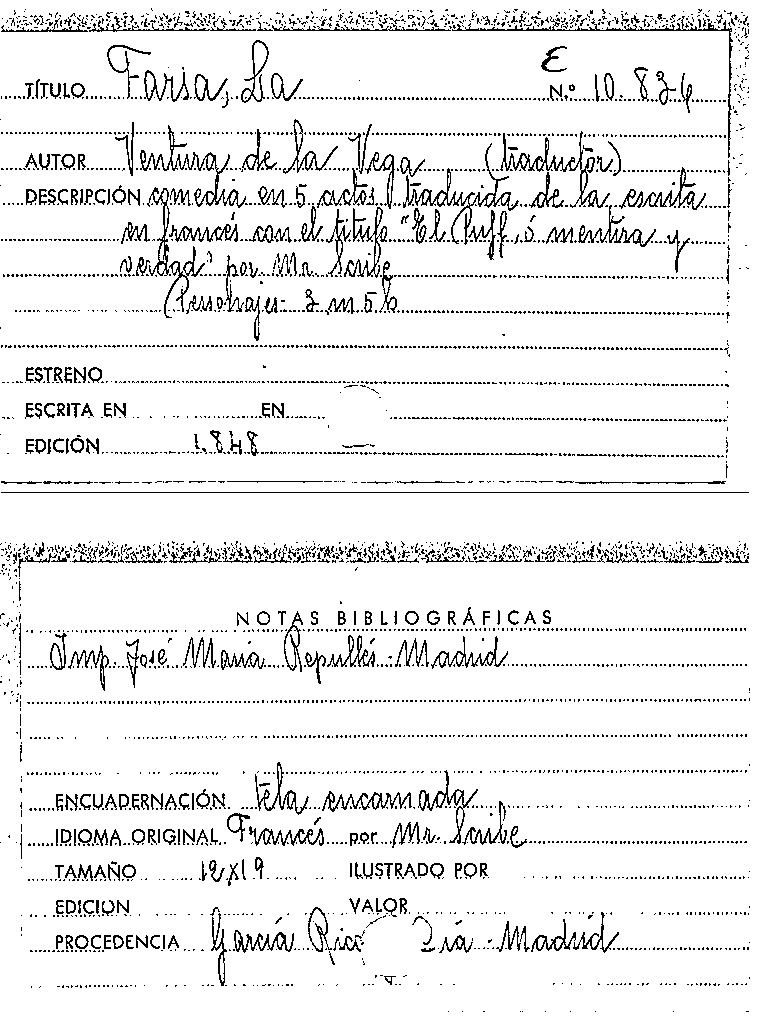 E
TÍTULO Farsa, La N.º 10.836
AUTOR Ventura de la Vega (traductor)
DESCRIPCIÓN comedia en 5 actos traducida de la escrita
en francés con el título "El Puff, ó mentira y
verdad" por Mr. Scribe
(Personajes- 3 m 5 h
ESTRENO
ESCRITA EN EN
EDICIÓN 1.848
NOTAS BIBLIOGRÁFICAS
Imp. José María Repullés - Madrid
ENCUADERNACIÓN tela encarnada
IDIOMA ORIGINAL Francés por Mr. Scribe
TAMAÑO 12x19 ILUSTRADO POR
EDICION VALOR
PROCEDENCIA García Rico Madrid